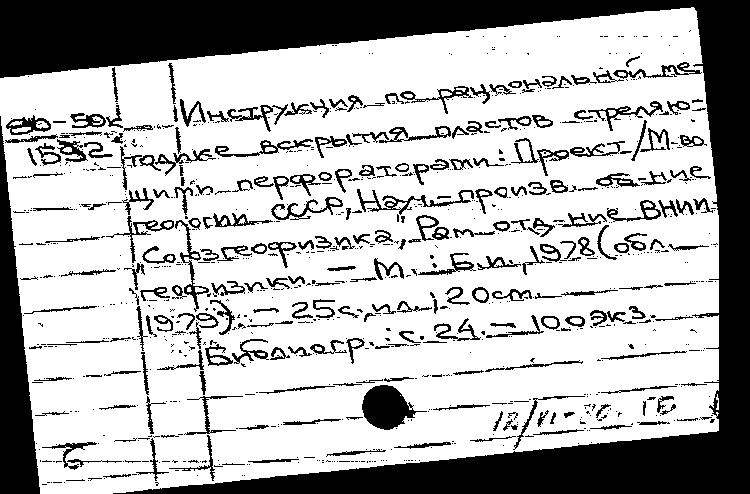 Инструкция по рациональной ме-
80-50к
1592
тодике вскрытия пластов стреляю-
щими перфораторами: Проект/М-во
геологии СССР, Науч.-произв. об-ние
"Союзгеофизика", Рам. отд-ние ВНИИ-
геофизики. — М. : Б.и., 1978 (обл.
1979). — 25с., ил. ; 20см.
Библиогр.: с. 24. — 100экз.
12/VI-80. ГБ
б